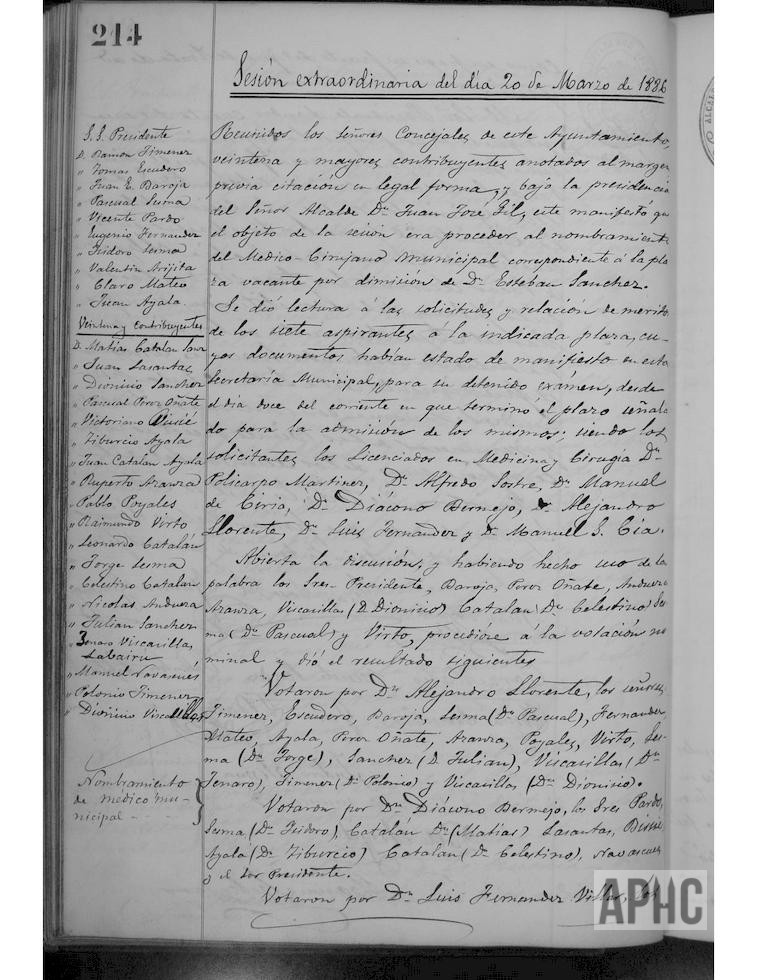 214
Sesión extraordinaria del día 20 de Marzo de 1886
S. S. Presidente
D. Ramon Jimenez
" Tomas Escudero
" Juan E. Baroja
" Pascual Sesma
" Vicente Pardo
" Eugenio Fernandez
" Isidoro Sesma
" Valentin Arijita
" Claro Mateo
" Juan Ayala.
Veintena y contribuyentes
D. Matias Catalan Sanz
" Juan Lasantas
" Dionisio Sanchez
" Pascual Perez Oñate
" Victoriano
" Tiburcio Ayala
" Juan Catalan Ayala
" Ruperto Aranza
" Pablo Poyales
" Raimundo Virto
" Leonardo Catalán
" Jorge Sesma
" Celestino Catalan
" Nicolas Andueza
" Julian Sanchez
" Jenaro Viscasillas
Labairu
" Manuel Navascues
" Polonio Jimenez
" Dionisio Viscasillas
Nombramiento
de medico mu-
nicipal -
Reunidos los señores Concejales de este Ayuntamiento,
veintena y mayores contribuyentes anotados al margen
previa citación en legal forma, y bajo la presidencia
del Señor Alcalde Dn. Juan José Gil, este manifestó que
el objeto de la sesión era proceder al nombramiento
del Medico-Cirujano Municipal correspondiente á la pla
za vacante por dimisión de Dn. Esteban Sanchez.
Se dió lectura á las solicitudes y relación de meritos
de los siete aspirantes á la indicada plaza, cu-
yos documentos habian estado de manifiesto en esta
Secretaría Municipal, para su detenido exámen, desde
el dia doce del corriente en que terminó el plazo señala
do para la admisión de los mismos; siendo los
solicitantes los Licenciados en Medicina y Cirugia Dn.
Policarpo Martinez, Dn. Alfredo Sostre, Dn. Manuel
de Ciria, Dn. Diácono Bermejo, Dn. Alejandro
Llorente, Dn. Luis Fernandez y Dn. Manuel S. Cia.
Abierta la discusión, y habiendo hecho uso de la
palabra los Sres. Presidente, Baroja, Perez Oñate, Andueza
Aranza, Viscasillas (D. Dionisio) Catalan (Dn. Celestino) Ses
ma (Dn. Pascual) y Virto, procediose á la votación no
minal y dió el resultado siguiente
Votaron por Dn. Alejandro Llorente, los señores
Jimenez, Escudero, Baroja, Sesma (Dn. Pascual), Fernandez
Mateo, Ayala, Perez Oñate, Aranza, Poyales, Virto, Ses-
ma (Dn. Jorge), Sanchez (D. Julian), Viscasillas (Dn.
Jenaro), Jimenez (Dn. Polonio) y Viscasillas (Dn. Dionisio).
Votaron por Dn. Diácono Bermejo, los Sres Pardo,
Sesma (Dn. Isidoro), Catalan Dn. (Matías) Lasantas,
Ayala (Dn. Tiburcio) Catalan (Dn. Celestino), Navascues
y el Sor Presidente.
Votaron por Dn. Luis Fernandez Villar, los
APHC